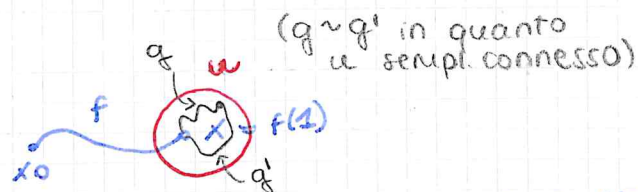 (g~g' in quanto
u sempl. connesso)
g
u
f
x = f(1)
x0
g'